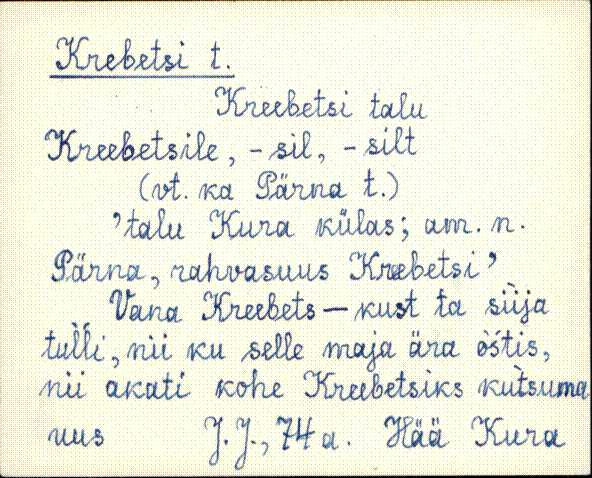 Krebetsi t.
Kreebetsi talu
Kreebetsile, -sil, -silt
(vt. ka Pärna t.)
'talu Kura külas; am. n.
Pärna, rahvasuus Kreebetsi'
Vana Kreebets – kust ta sìija
tulĺi, nii ku selle maja ära òśtis,
nii akati kohe Kreebetsiks kùtsuma
uus J. J., 74 a. Hää Kura